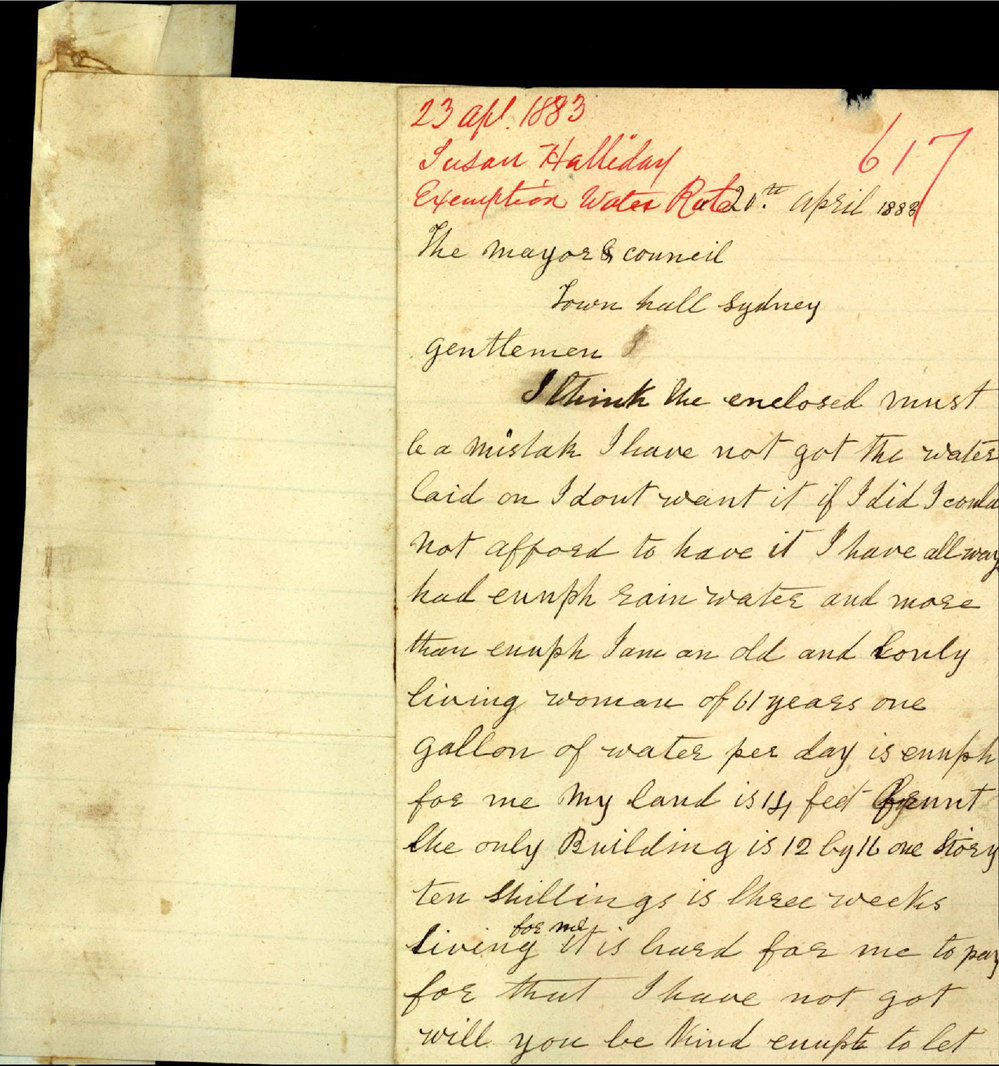 23 apl. 1883
617
Susan Halliday
Exemption Water Rate
20th. april 1883
The mayor & council
Town hall Sydney
gentlemen
I think the enclosed must
be a mistak I have not got the water
laid on I dont want it if I did I could
not afford to have it I have all way
had enuph rain water and more
than enuph I am an old and Lonly
living woman of 61 years one
gallon of water per day is enuph
for me My land is 14 feet frunt
the only Building is 12 by 16 one Story
ten shillings is three weeks
living for me it is hard for me to pay
for that I have not got
will you be kind enuph to let